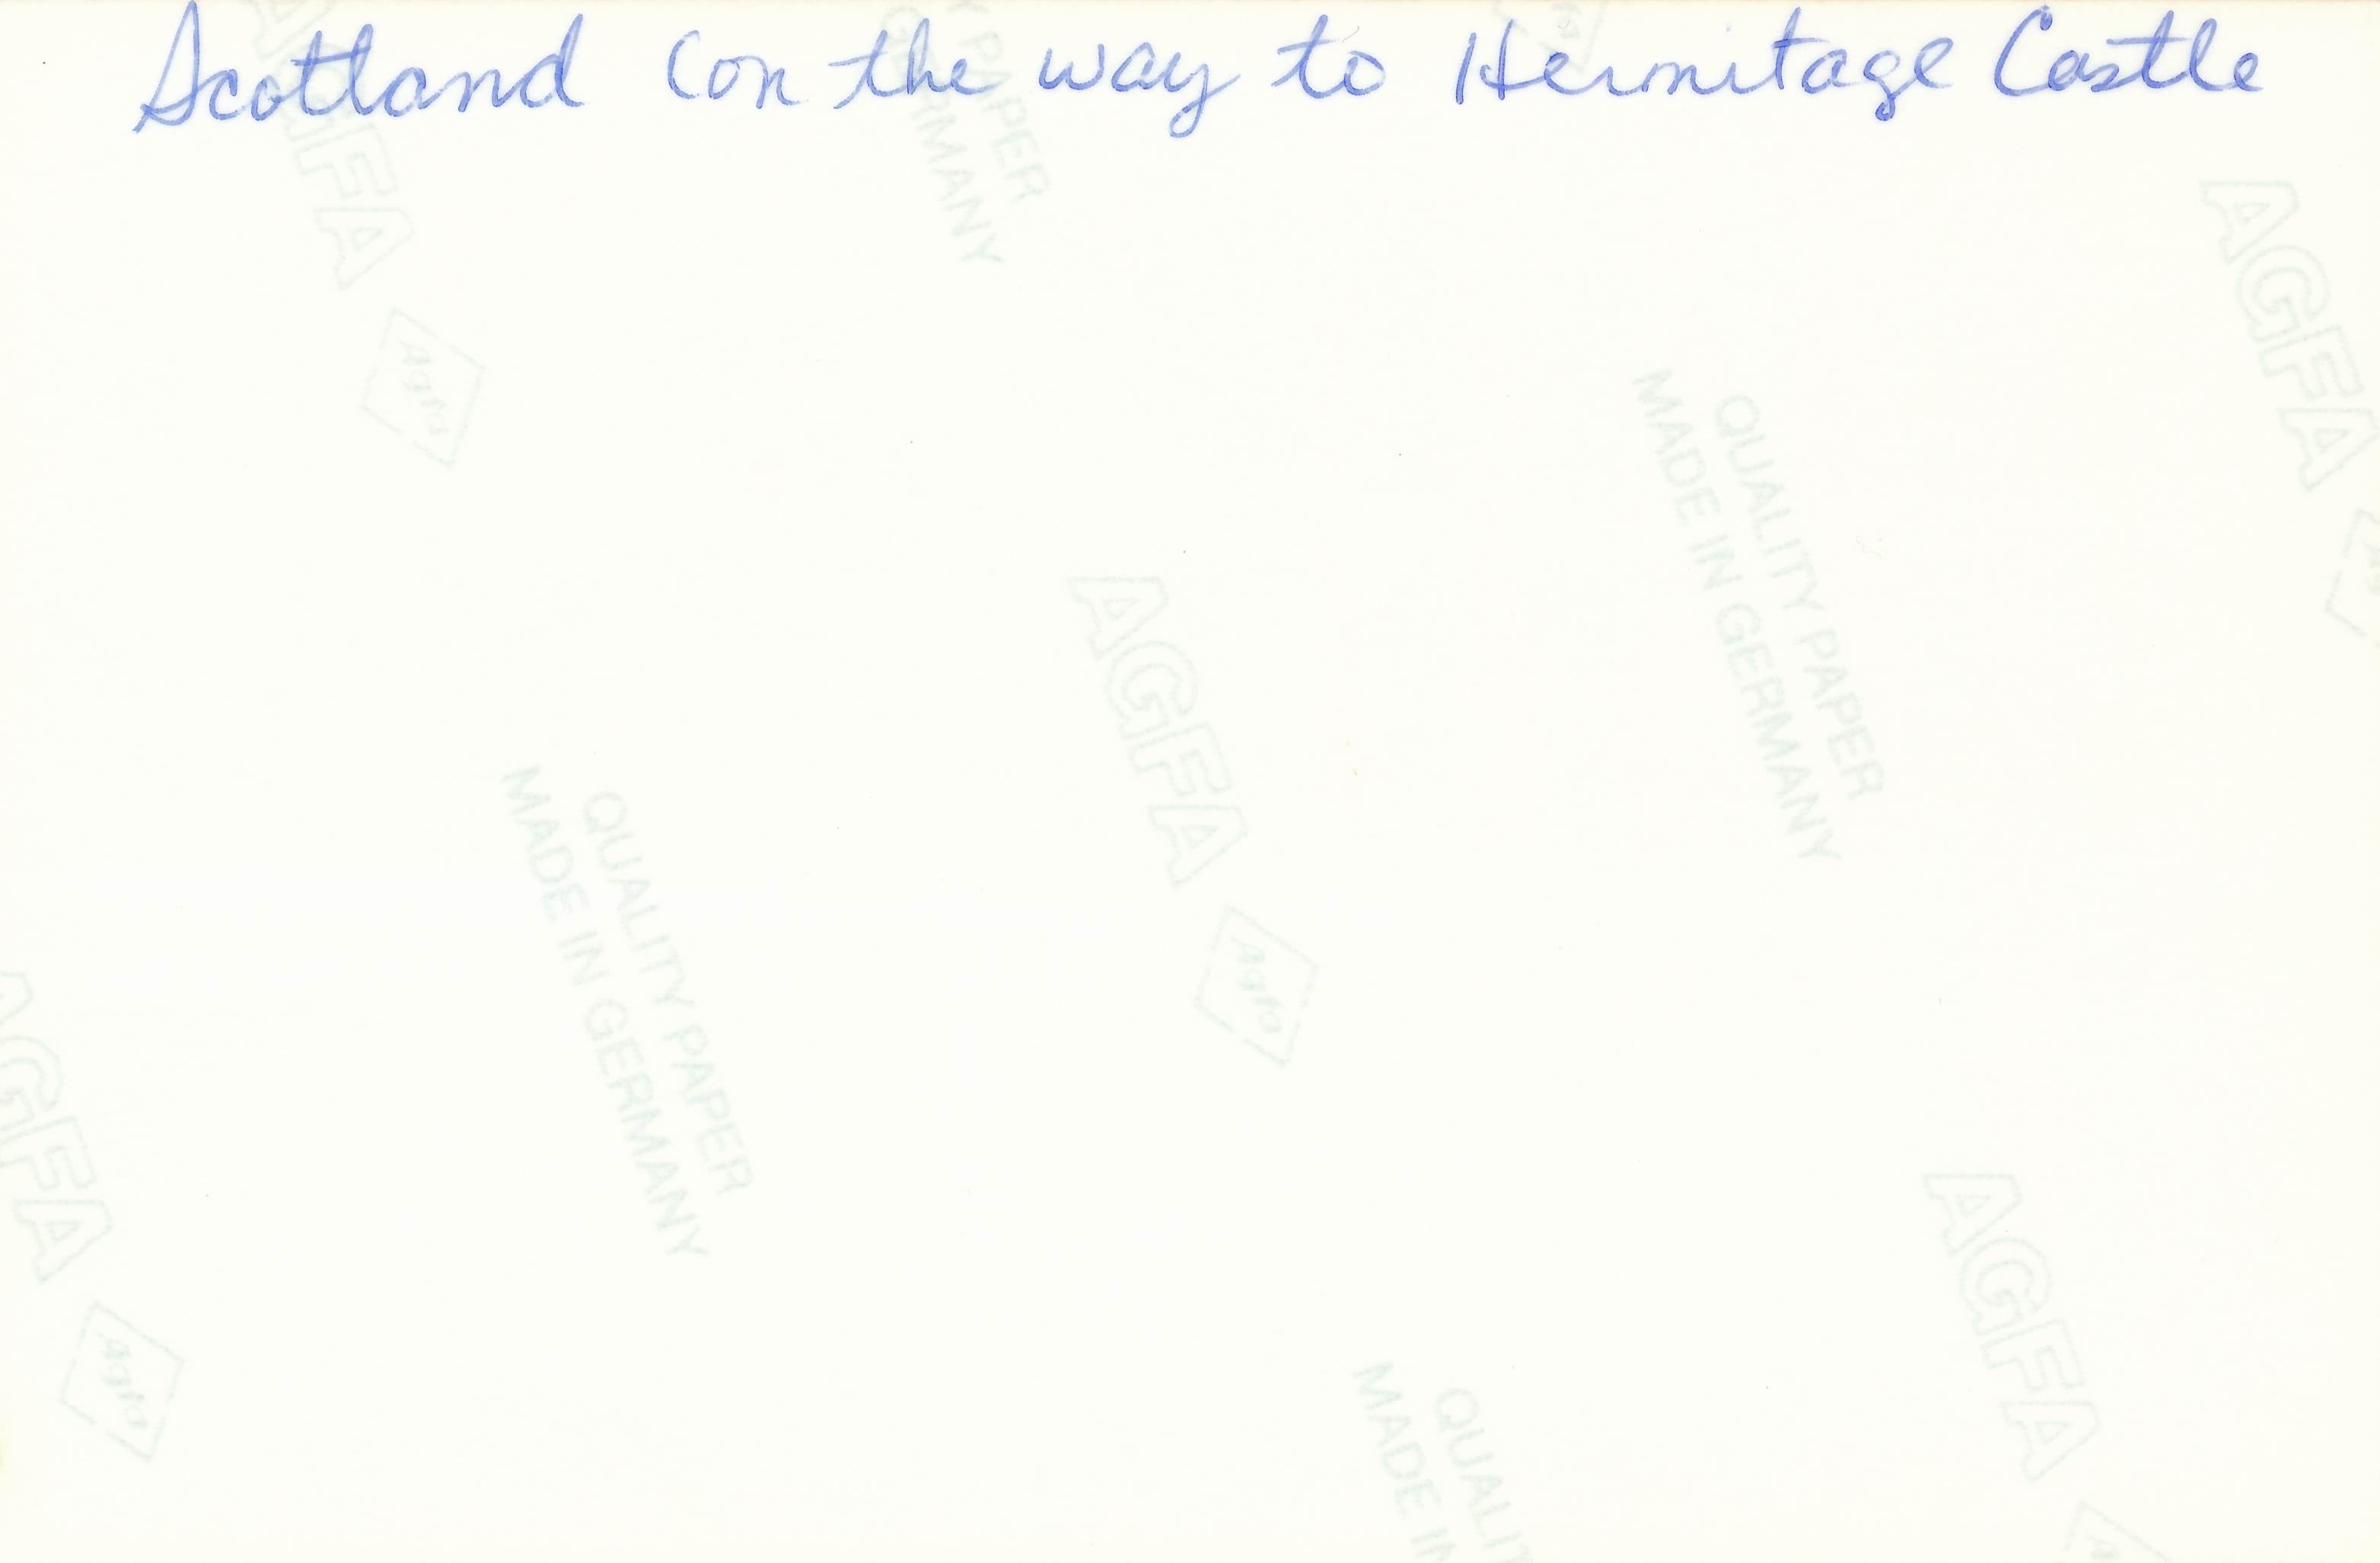 Scotland (on the way to Hermitage Castle
AGFA
Agfa
Y PAPER
GERMANY
AGFA
QUALITY PAPER
MADE IN GERMANY
AGFA
Agfa
QUALITY PAPER
MADE IN GERMANY
AGFA
Agfa
AGFA
QUALIT
MADE IN